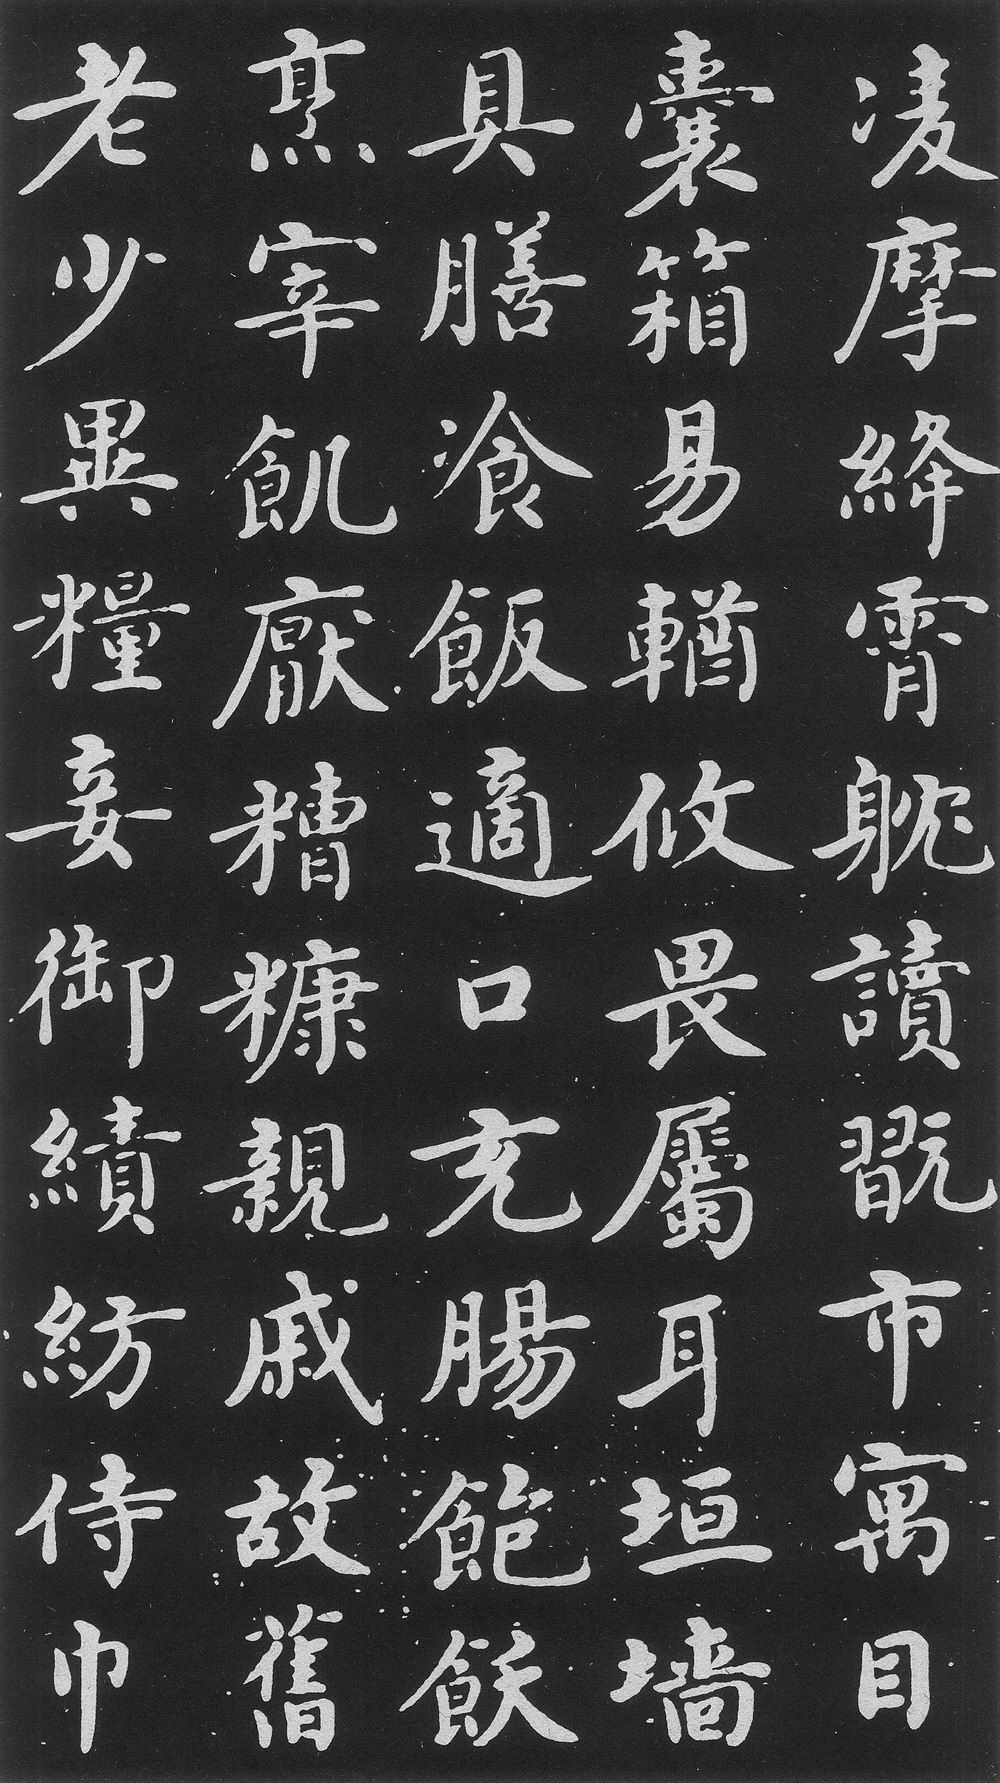 凌摩絳霄躭讀翫市寓目
囊箱易輶攸畏屬耳垣墻
具膳飡飯適口充腸飽飫
烹宰飢厭糟糠親戚故舊
老少異糧妾御績紡侍巾